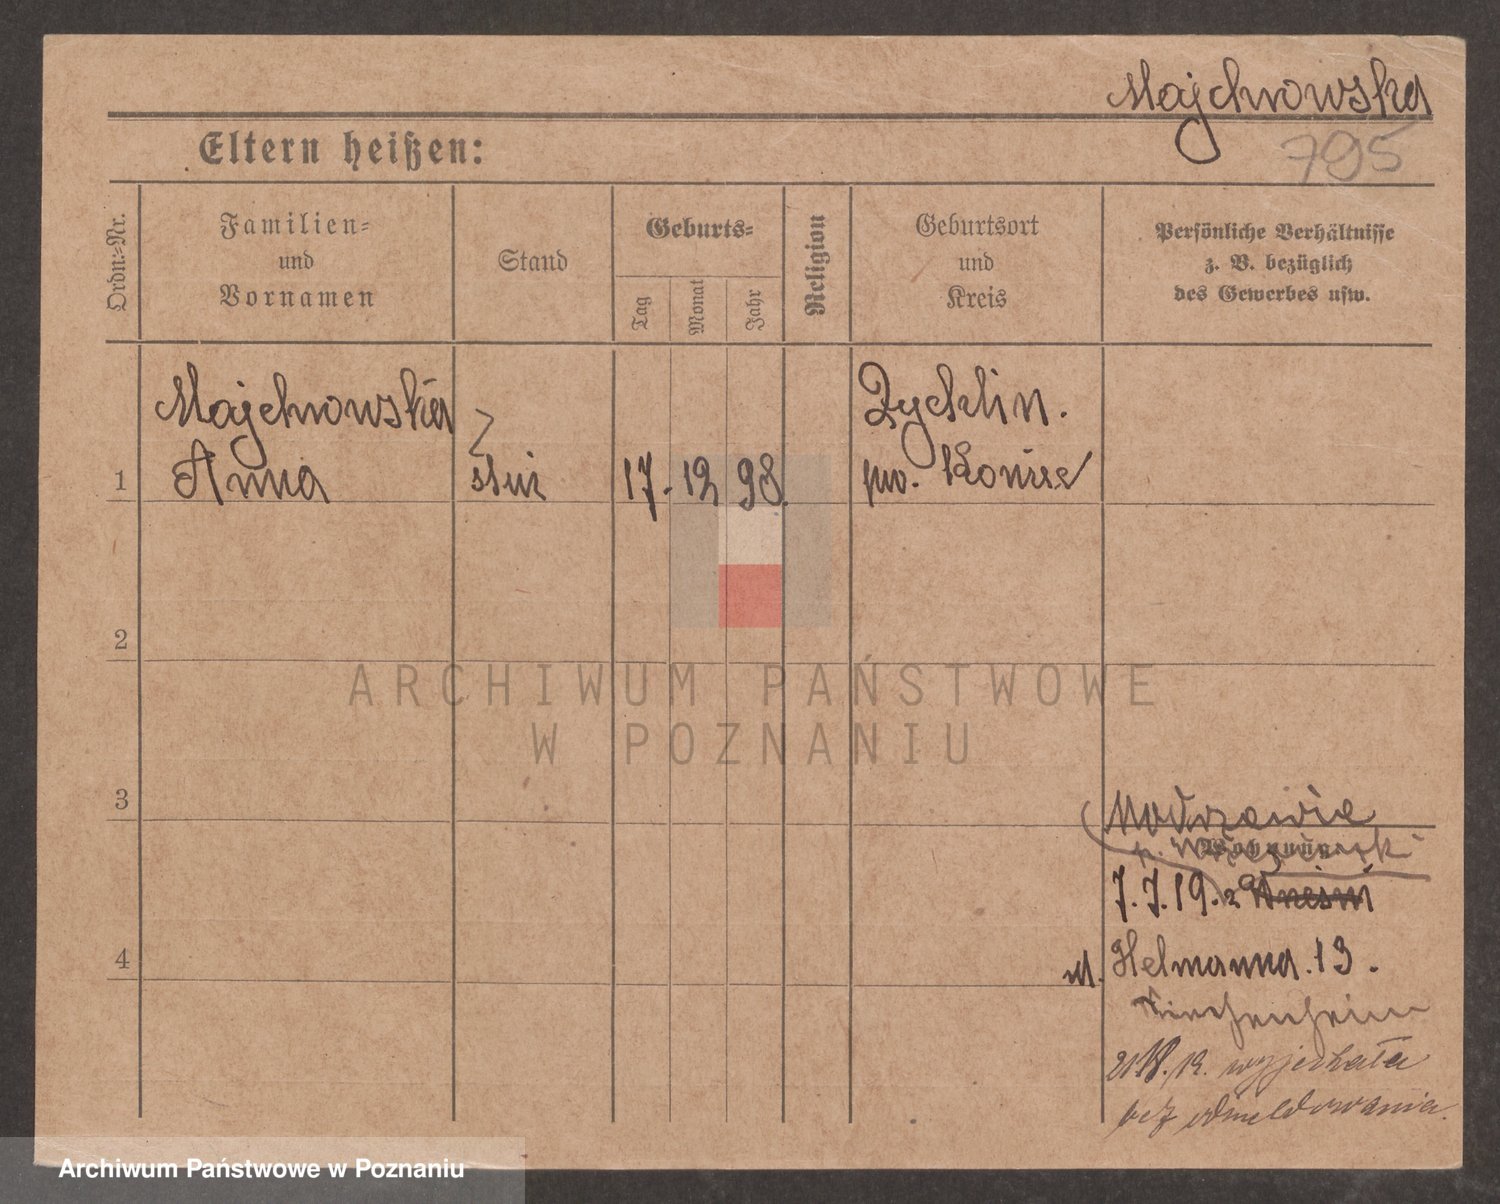 Majchrowska
795
Eltern heißen:
Ordn.-Nr.
Familien-
und
Vornamen
Stand
Geburts-
Tag
Monat
Jahr
Religion
Geburtsort
und
Kreis
Persönliche Verhältnisse
z. B. bezüglich
des Gewerbes usw.
Majchrowska
Anna
17. 12 98.
Rychlin.
pw. Konin
1
2
3
4
Modrzewie
Wohnung
7.7.19. z Gnesni
ul. Helmanna. 13.
wyjechała
bez odmeldowania.
ARCHIWUM PAŃSTWOWE
W POZNANIU
Archiwum Państwowe w Poznaniu